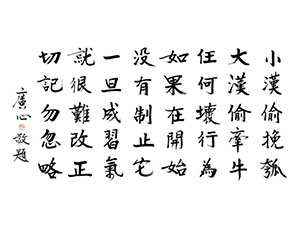 小漢偷挽瓠
大漢偷牽牛
任何壞行為
如果在開始
没有制止它
一旦成習氣
就很難改正
切記勿忽略
廣心敬題